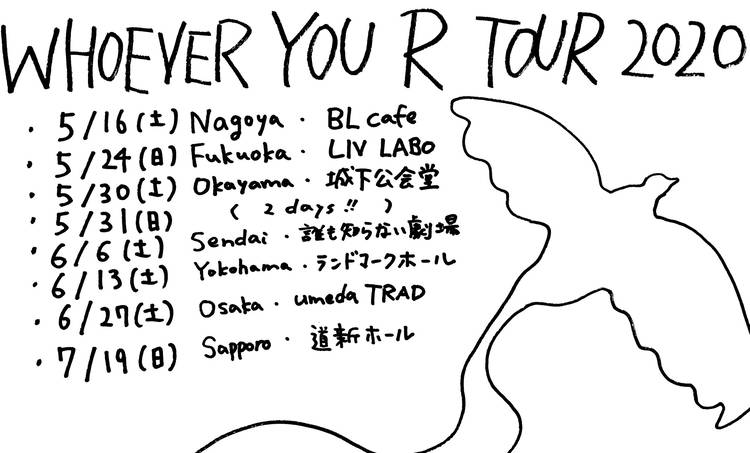 WHOEVER YOU R TOUR 2020
・5/16(土) Nagoya・BL cafe
・5/24(日) Fukuoka・LIV LABO
・5/30(土) Okayama・城下公会堂
・5/31(日) (2 days!!)
・6/6(土) Sendai・誰も知らない劇場
・6/13(土) Yokohama・ランドマークホール
・6/27(土) Osaka・umeda TRAD
・7/19(日) Sapporo・道新ホール